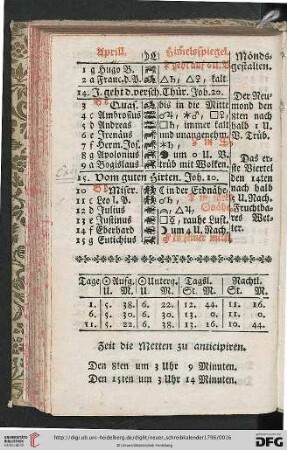 Aprill. ☽☾ Himelsspiegel. Monds-
1 g Hugo B. ☿ geht auf 6 U. V. gestalten.
2 a Franc. d. P. △♄, △♀, kalt.
14. J. geht d. versch. Thür. Joh. 20. Der Neu-
3 Quas. bis in die Mitte mond den
4 c Ambrosius 8ten nach
5 d Andreas □♄, immer kalt halb 1 U.
6 e Irenäus und unangenehm, V. Trüb.
7 f Herm. Jos. ✶♄,
8 g Apolonius um 0 U. V. Das er-
9 a Bogislaus trüb mit Wolken. ste Viertel
15. Vom guten Hirten. Joh. 10. den 14ten
10 Miser. ☾ in der Erdnähe, nach halb
11 c Leo I. P. 2 U. Nach.
12 d Julius △♃, Fruchtba-
13 e Justinus rauhe Lust. res Wet-
14 f Eberhard ☽ um 4 U. Nach. ter.
15 g Eutichius
Tage ☉ Aufg. ☉ Unterg. Tagsl. Nachtl.
U. M. U. M. St. M. St. M.
1. 5. 38. 6. 22. 12. 44. 11. 16.
6. 5. 30. 6. 30. 13. 0. 11. 0.
11. 5. 22. 6. 38. 13. 16. 10. 44.
Zeit die Metten zu anticipiren.
Den 8ten um 3 Uhr 9 Minuten.
Den 15ten um 3 Uhr 14 Minuten.
UNIVERSITÄTS-
BIBLIOTHEK
HEIDELBERG
http://digi.ub.uni-heidelberg.de/diglit/neuer_schreibkalender1796/0016
© Universitätsbibliothek Heidelberg
gefördert durch die
DFG